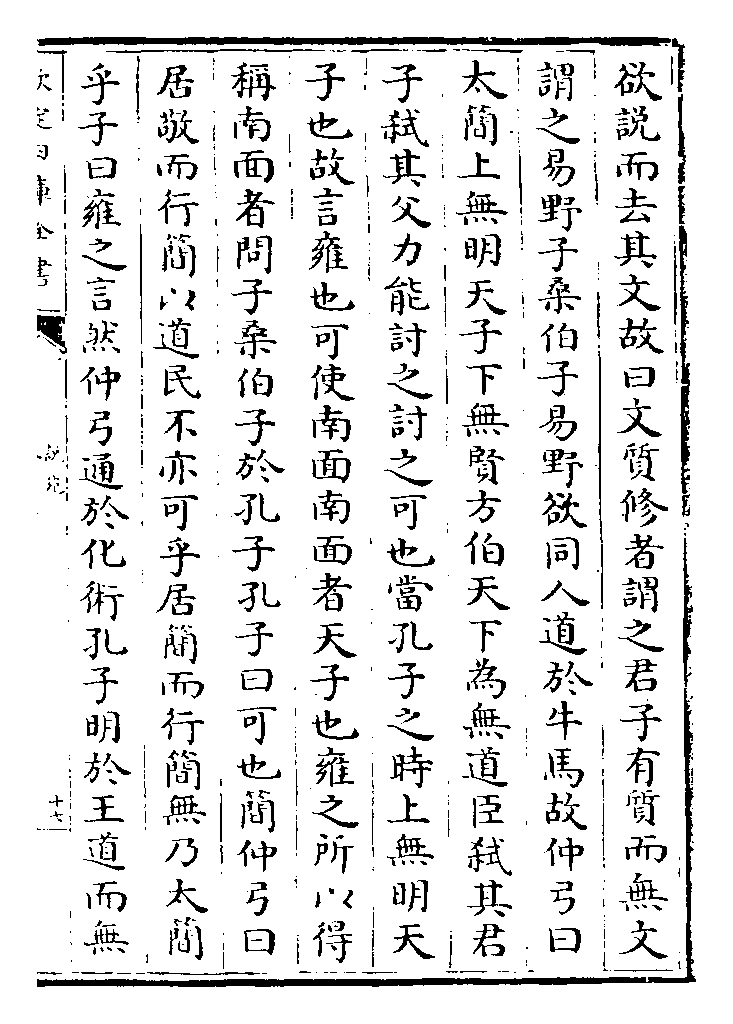 欲説而去其文故曰文質修者謂之君子有質而無文
謂之易野子桑伯子易野欲同人道於牛馬故仲弓曰
太簡上無明天子下無賢方伯天下為無道臣弑其君
子弑其父力能討之討之可也當孔子之時上無明天
子也故言雍也可使南面南面者天子也雍之所以得
稱南面者問子桑伯子於孔子孔子曰可也簡仲弓曰
居敬而行簡以道民不亦可乎居簡而行簡無乃太簡
乎子曰雍之言然仲弓通於化術孔子明於王道而無
欽定四庫全書
説苑
十七